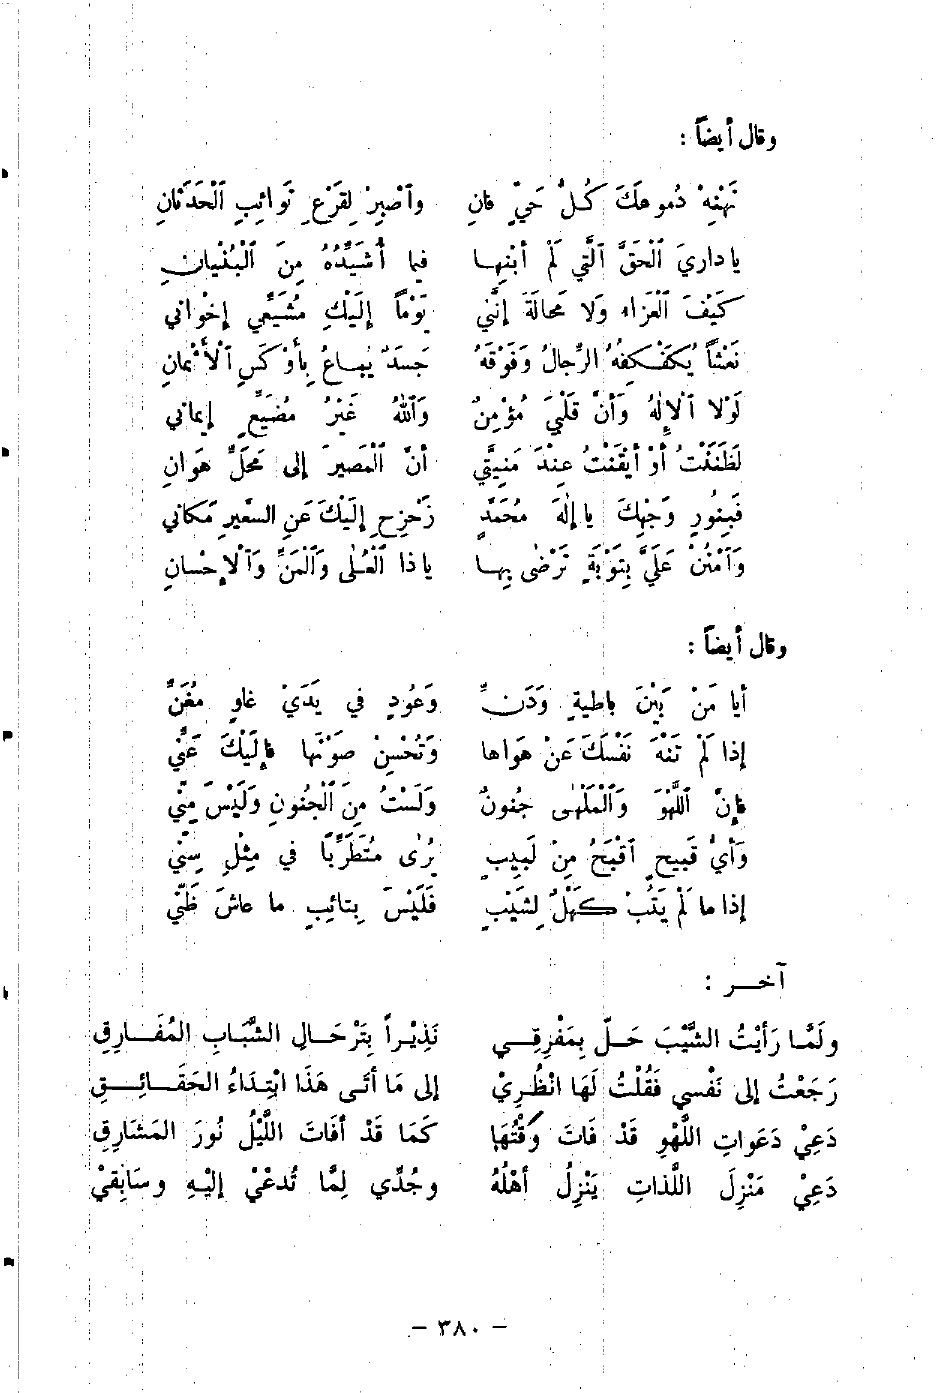 وقال أيضاً :
نَهْنِهْ دُموعَكَ كُلُّ حَيٍّ فانِ وأصْبِرْ لِقَرْعِ نَوائِبِ ٱلْحَدَثانِ
يا دارِيَ ٱلْحَقَّ ٱلَّتي لَمْ أبْنِها فيما أُشَيِّدُهُ مِنَ ٱلْبُنْيانِ
كَيْفَ ٱلْعَزاءُ وَلا مَحالَةَ إنَّني يَوْماً إلَيْكِ مُشَيِّعي إخْواني
نَعْشاً يُكَفْكِفُهُ الرِّجالُ وَفَوْقَهُ جَسَدٌ يُباعُ بِأوْكَسِ ٱلْأثْمانِ
لَوْلا ٱلْإلهُ وَأنَّ قَلْبيَ مُؤْمِنٌ وَٱللهُ غَيْرُ مُضَيِّعٍ إيماني
لَظَنَنْتُ أوْ أيْقَنْتُ عِنْدَ مَنِيَّتي أنَّ ٱلْمَصيرَ إلى مَحَلِّ هَوانِ
فَبِنُورِ وَجْهِكَ يا إلٰهَ مُحَمَّدٍ زَحْزِحْ إلَيْكَ عَنِ السَّعيرِ مَكاني
وَٱمْنُنْ عَلَيَّ بِتَوْبَةٍ تَرْضٰى بِها يا ذا ٱلْعُلٰى وَٱلْمَنِّ وَٱلْإحْسانِ
وقال أيضاً :
أيا مَنْ بَيْنَ باطِيةٍ وَدَنِّ وَعُودٍ في يَدَيْ غاوٍ مُغَنِّ
إذا لَمْ تَنْهَ نَفْسَكَ عَنْ هَواها وَتُحْسِنْ صَوْنَها فإلَيْكَ عَنّي
فإنَّ ٱللَّهْوَ وَٱلْمَلْهٰى جُنونٌ وَلَسْتُ مِنَ ٱلْجُنونِ وَلَيْسَ مِنّي
وَأيُّ قَبيحٍ ٱقْبَحُ مِنْ لَبيبٍ يُرٰى مُتَطَرِّبًا في مِثْلِ سِنّي
إذا ما لَمْ يَتُبْ كَهْلٌ لِشَيْبٍ فَلَيْسَ بِتائِبٍ ما عاشَ ظَنّي
آخر :
ولَمَّا رَأيْتُ الشَّيْبَ حَلّ بِمَفْرِقِي نَذِيْراً بِتَرْحَالِ الشَّبَابِ المُفَارِقِ
رَجَعْتُ إلى نَفْسي فَقُلْتُ لَهَا انْظُرِيْ إلى مَا أتَى هَذَا ابْتِدَاءُ الحَقَائِقِ
دَعِيْ دَعَواتِ اللَّهْوِ قَدْ فَاتَ وَقْتُهَا كَمَا قَدْ أفَاتَ اللَّيْلُ نُورَ المَشَارِقِ
دَعِيْ مَنْزِلَ اللَّذاتِ يَنْزِلُ أهْلُهُ وجُدِّي لِمَّا تُدعَيْ إلَيْهِ وسَابِقيْ
- ٣٨٠ -